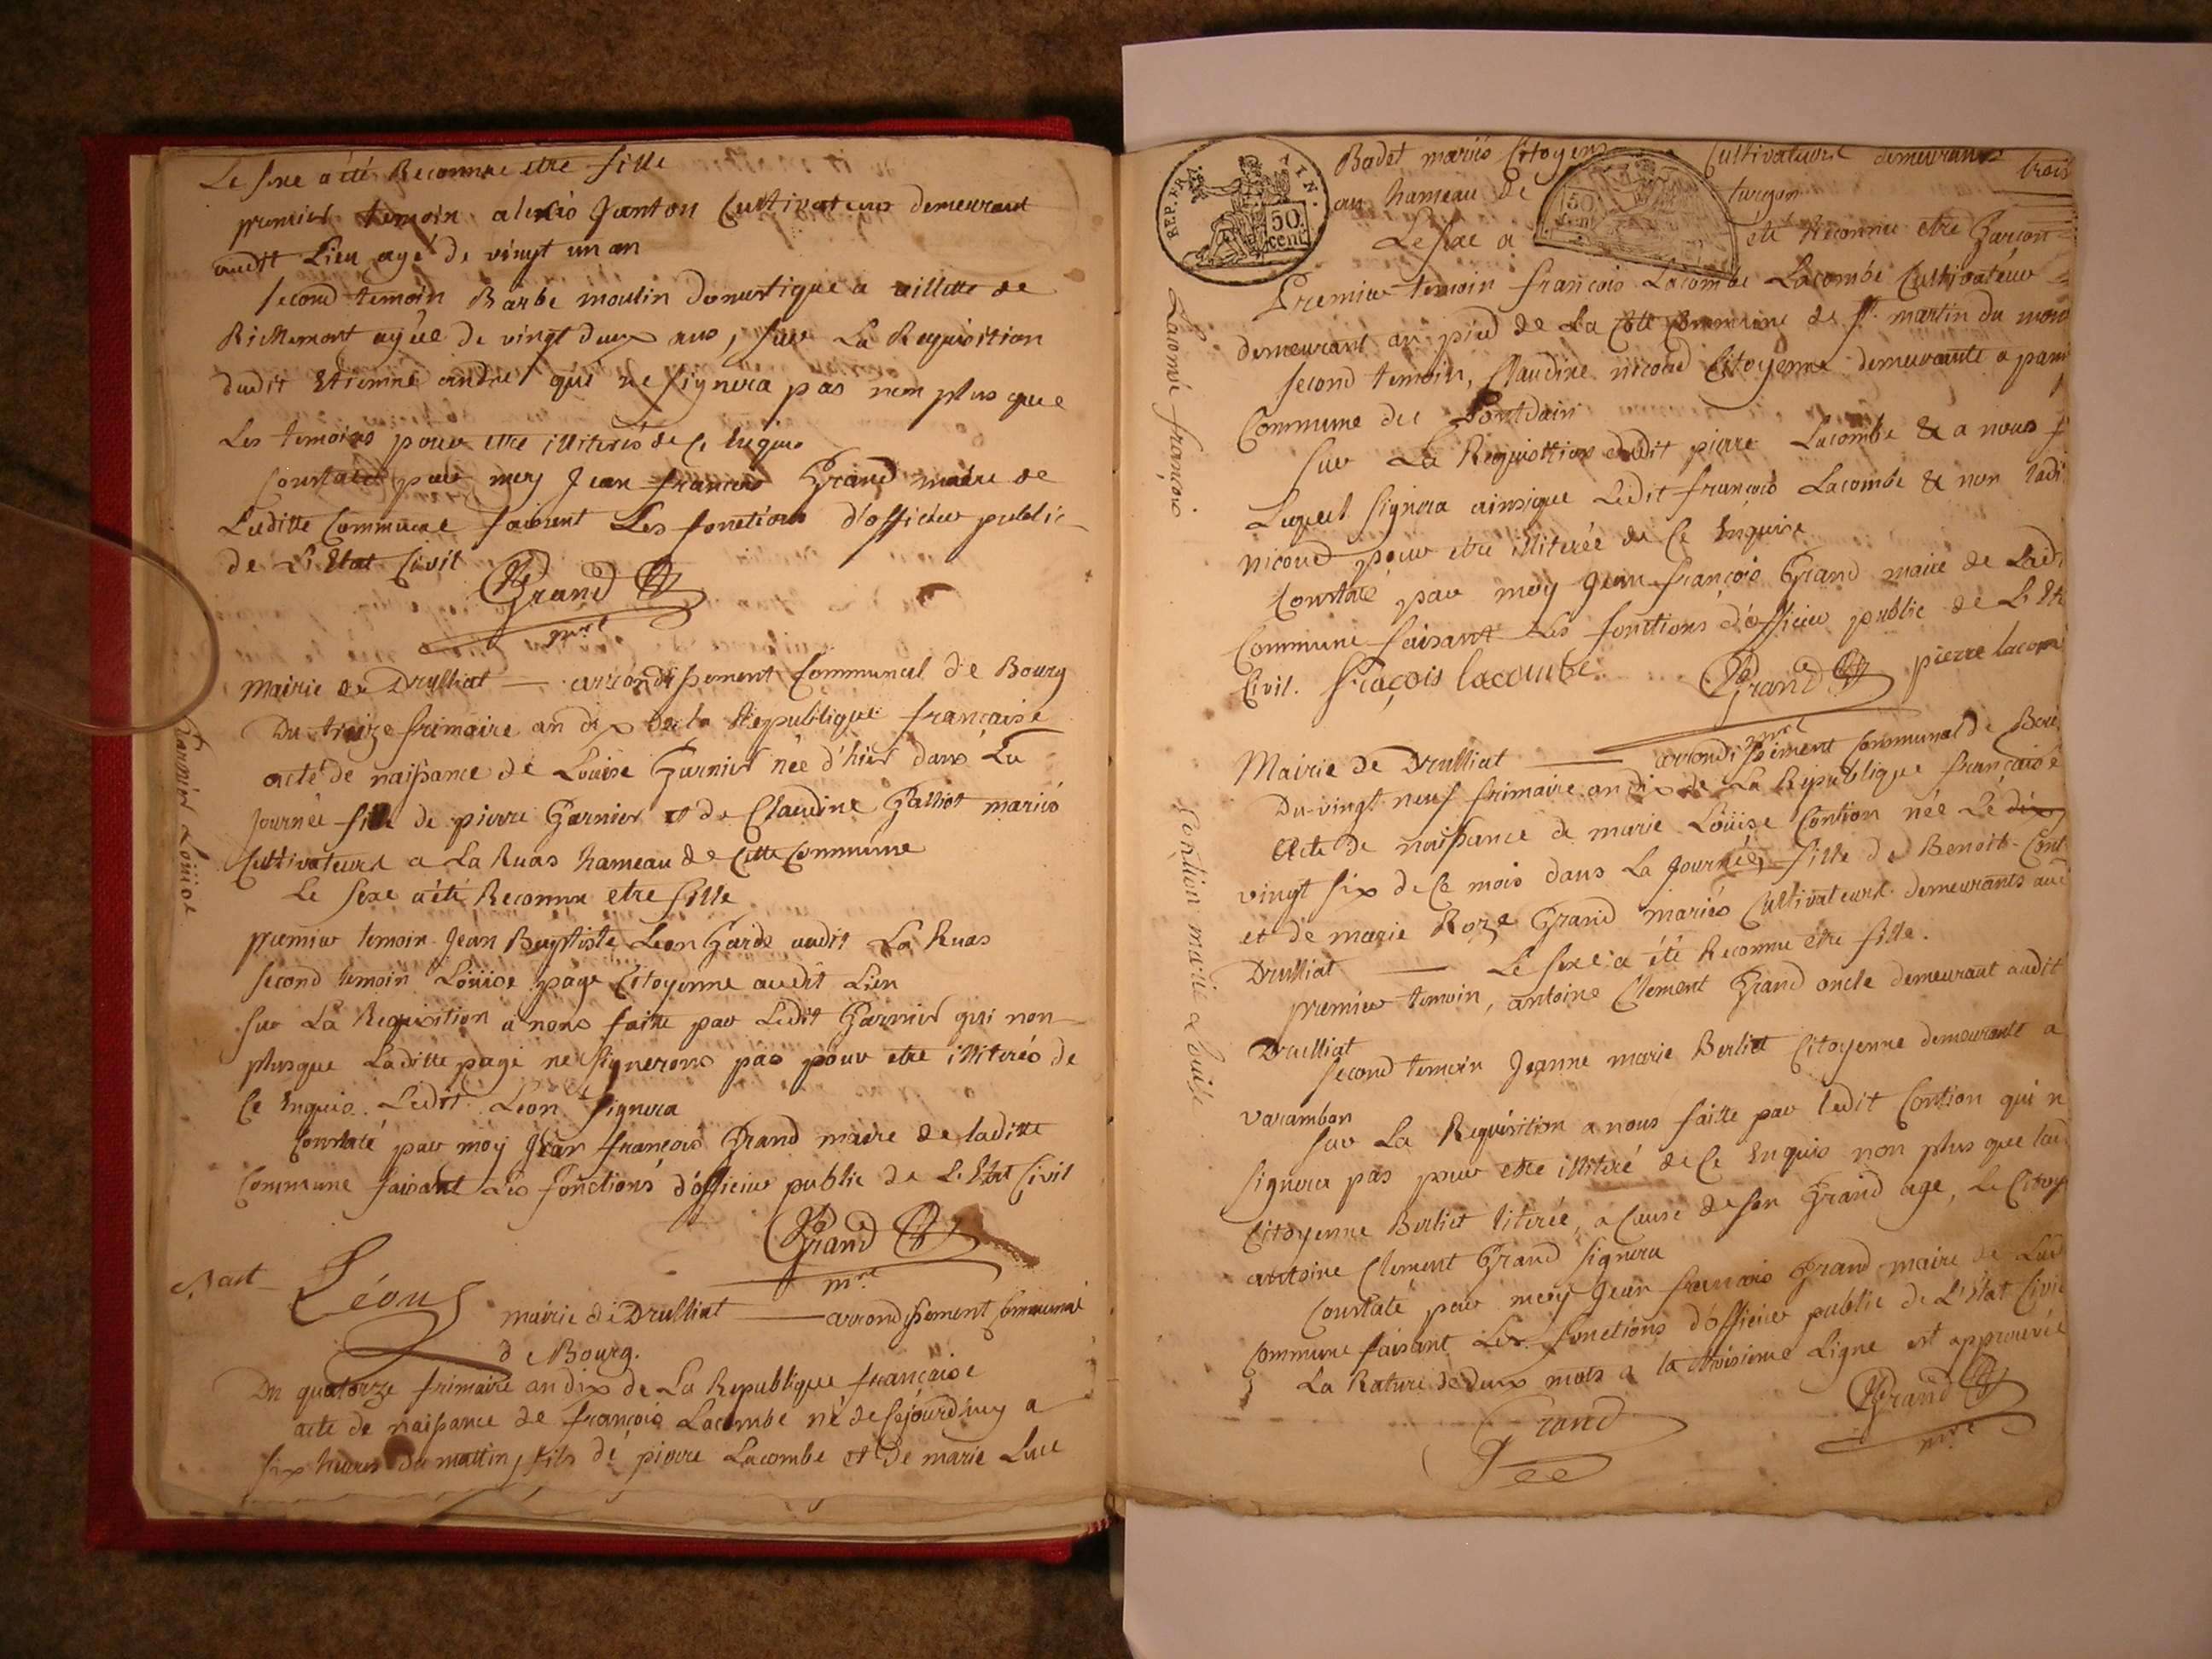 Le sexe a été Reconnue etre fille
premier temoin alexis Janton Cultivateur demeurant
audit Lieu agé de vingt un an
second temoin Barbe moulin domestique a villette de
Richemont agée de vingt deux ans, sur La Requisition
dudit Etienne andre qui ne signera pas non plus que
Les temoins pour etre illiterés de ce Enquis
Constaté par moy Jean francois Grand maire de
Laditte Commune faisant Les fonctions d'officier public
de L'Etat Civil
Grand
mre
Mairie de Drulliat — arrondissement Communal de Bourg
Du treize frimaire an dix de la Republique francaise
acte de naissance de Louise Garnier née d'hier dans La
Journée fille de pierre Garnier et de Claudine Galliot mariés
Cultivateurs a La Ruas hameau de Cette Commune
Le sexe a été Reconnu etre fille
premier temoin Jean Baptiste Leon Garde audit La Ruas
second temoin Loüise page Citoyenne audit Lieu
sur La Requisition a nous faitte par Ledit Garnier qui non
plusque Laditte page ne signerons pas pour etre illiterés de
Ce Enquis. Ledit Leon signera
Constaté par moy Jean francois Grand maire de laditte
Commune faisant Les fonctions d'officier public de L'Etat Civil
Grand
mre
Léon
mairie de Drulliat — arrondissement Communal
de Bourg.
Du quatorze frimaire an dix de La Republique francaise
acte de naissance de françois Lacombe né de sejourdhuy a
six heures du mattin, fils de pierre Lacombe et de marie Luce
Garnier Loüise
REP. FRA.
50 cent
50 cent
Badet mariés Citoyens Cultivateurs demeurants trois
au hameau de turgon
Le sexe a eté Reconnu etre Garcon
Premier temoin francois Lacombe Lacombe Cultivateur
demeurant au pied de La Côte Commune de St. martin du mon
second temoin, Claudine nicoud Citoyenne demeurante a
Commune de Pontdain
sur La Requisition dudit pierre Lacombe & a nous f
Lequel signera ainsique Ledit françois Lacombe & non ladi
nicoud pour etre illiterée de Ce Enquise
Constaté par moy Jean françois Grand maire de Ladi
Commune faisant Les fonctions d'officier public de L'Et
Civil. fraçois lacombe Grand pierre lacom
mre
Lacombe françois
Mairie de Drulliat — arrondissement Communal de Bou
Du vingt neuf frimaire an dix de La Republique française
Acte de naissance de marie Loüise Contion née Le dix
vingt six de Ce mois dans La Journée, fille de Benoit Cont
et de marie Roze Grand mariés Cultivateurs demeurants au
Drulliat — Le sexe a été Reconnu etre fille.
premier temoin, antoine Clement Grand oncle demeurant audit
Drulliat
second temoin Jeanne marie Berliet Citoyenne demeurante a
varambon
sur La Requisition a nous faitte par ledit Contion qui n
signera pas pour etre illiteré de Ce Enquis non plus que lad
Citoyenne Berliet literée, a Cause de son Grand age, Le Citoy
antoine Clement Grand signera
Constaté par moy Jean francois Grand maire de Lad
Commune faisant Les fonctions d'officier public de L'Etat Civil
La Rature de deux mots a la troisieme Ligne est approuvée
Grand
Grand
mre
Contion marie Louise